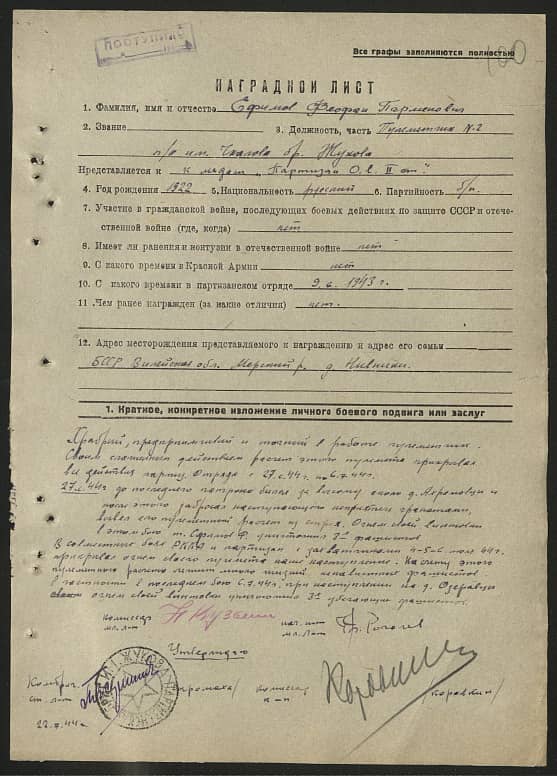 ПОСТУПИЛО
Все графы заполняются полностью
100
НАГРАДНОЙ ЛИСТ
1. Фамилия, имя и отчество Ефимов Феофан Парменович
2. Звание 3. Должность, часть Пулеметчик №2
п/о им. Чкалова бр. Жукова
Представляется к к медали "Партизан О.В. II ст."
4. Год рождения 1922 5. Национальность русский 6. Партийность б/п.
7. Участие в гражданской войне, последующих боевых действиях по защите СССР и отече-
ственной войне (где, когда) нет
8. Имеет ли ранения и контузии в отечественной войне нет
9. С какого времени в Красной Армии нет
10. С какого времени в партизанском отряде 9.6.1943 г.
11. Чем ранее награжден (за какие отличия) нет.
12. Адрес месторождения представляемого к награждению и адрес его семьи
БССР Вилейская обл. р. д.
1. Краткое, конкретное изложение личного боевого подвига или заслуг
Храбрый, предприимчивый и точный в работе пулеметчик.
Своим действием расчет этого пулемета прикрывал
все действия Отряда с 27.6.44г. по 6.7.44г.
27.6.44г. до последнего патрона бился за около д.
и после этого забросав наступающего гранатами,
вывел его пулеметный расчет из Огнем своей винтовки
в этом бою т. Ефимов Ф. уничтожил 3х фашистов
В совместных боях РККА и партизан с захватчиками 4-5-6 июля 44г.
прикрывал огнем своего пулемета наше наступление. На счету этого
пулеметного расчета много жизней ненавистных фашистов
в частности в последнем бою 6.7.44г. при наступлении на д.
огнем своей винтовки уничтожил 3х убегающих фашистов.
Комиссар Кузьмин нач. шт
мл. л-нт мл. л-нт Рогачев
Утверждаю
Комбриг комиссар
ст. л-нт к-н /Коровкин/
22.7.44г.